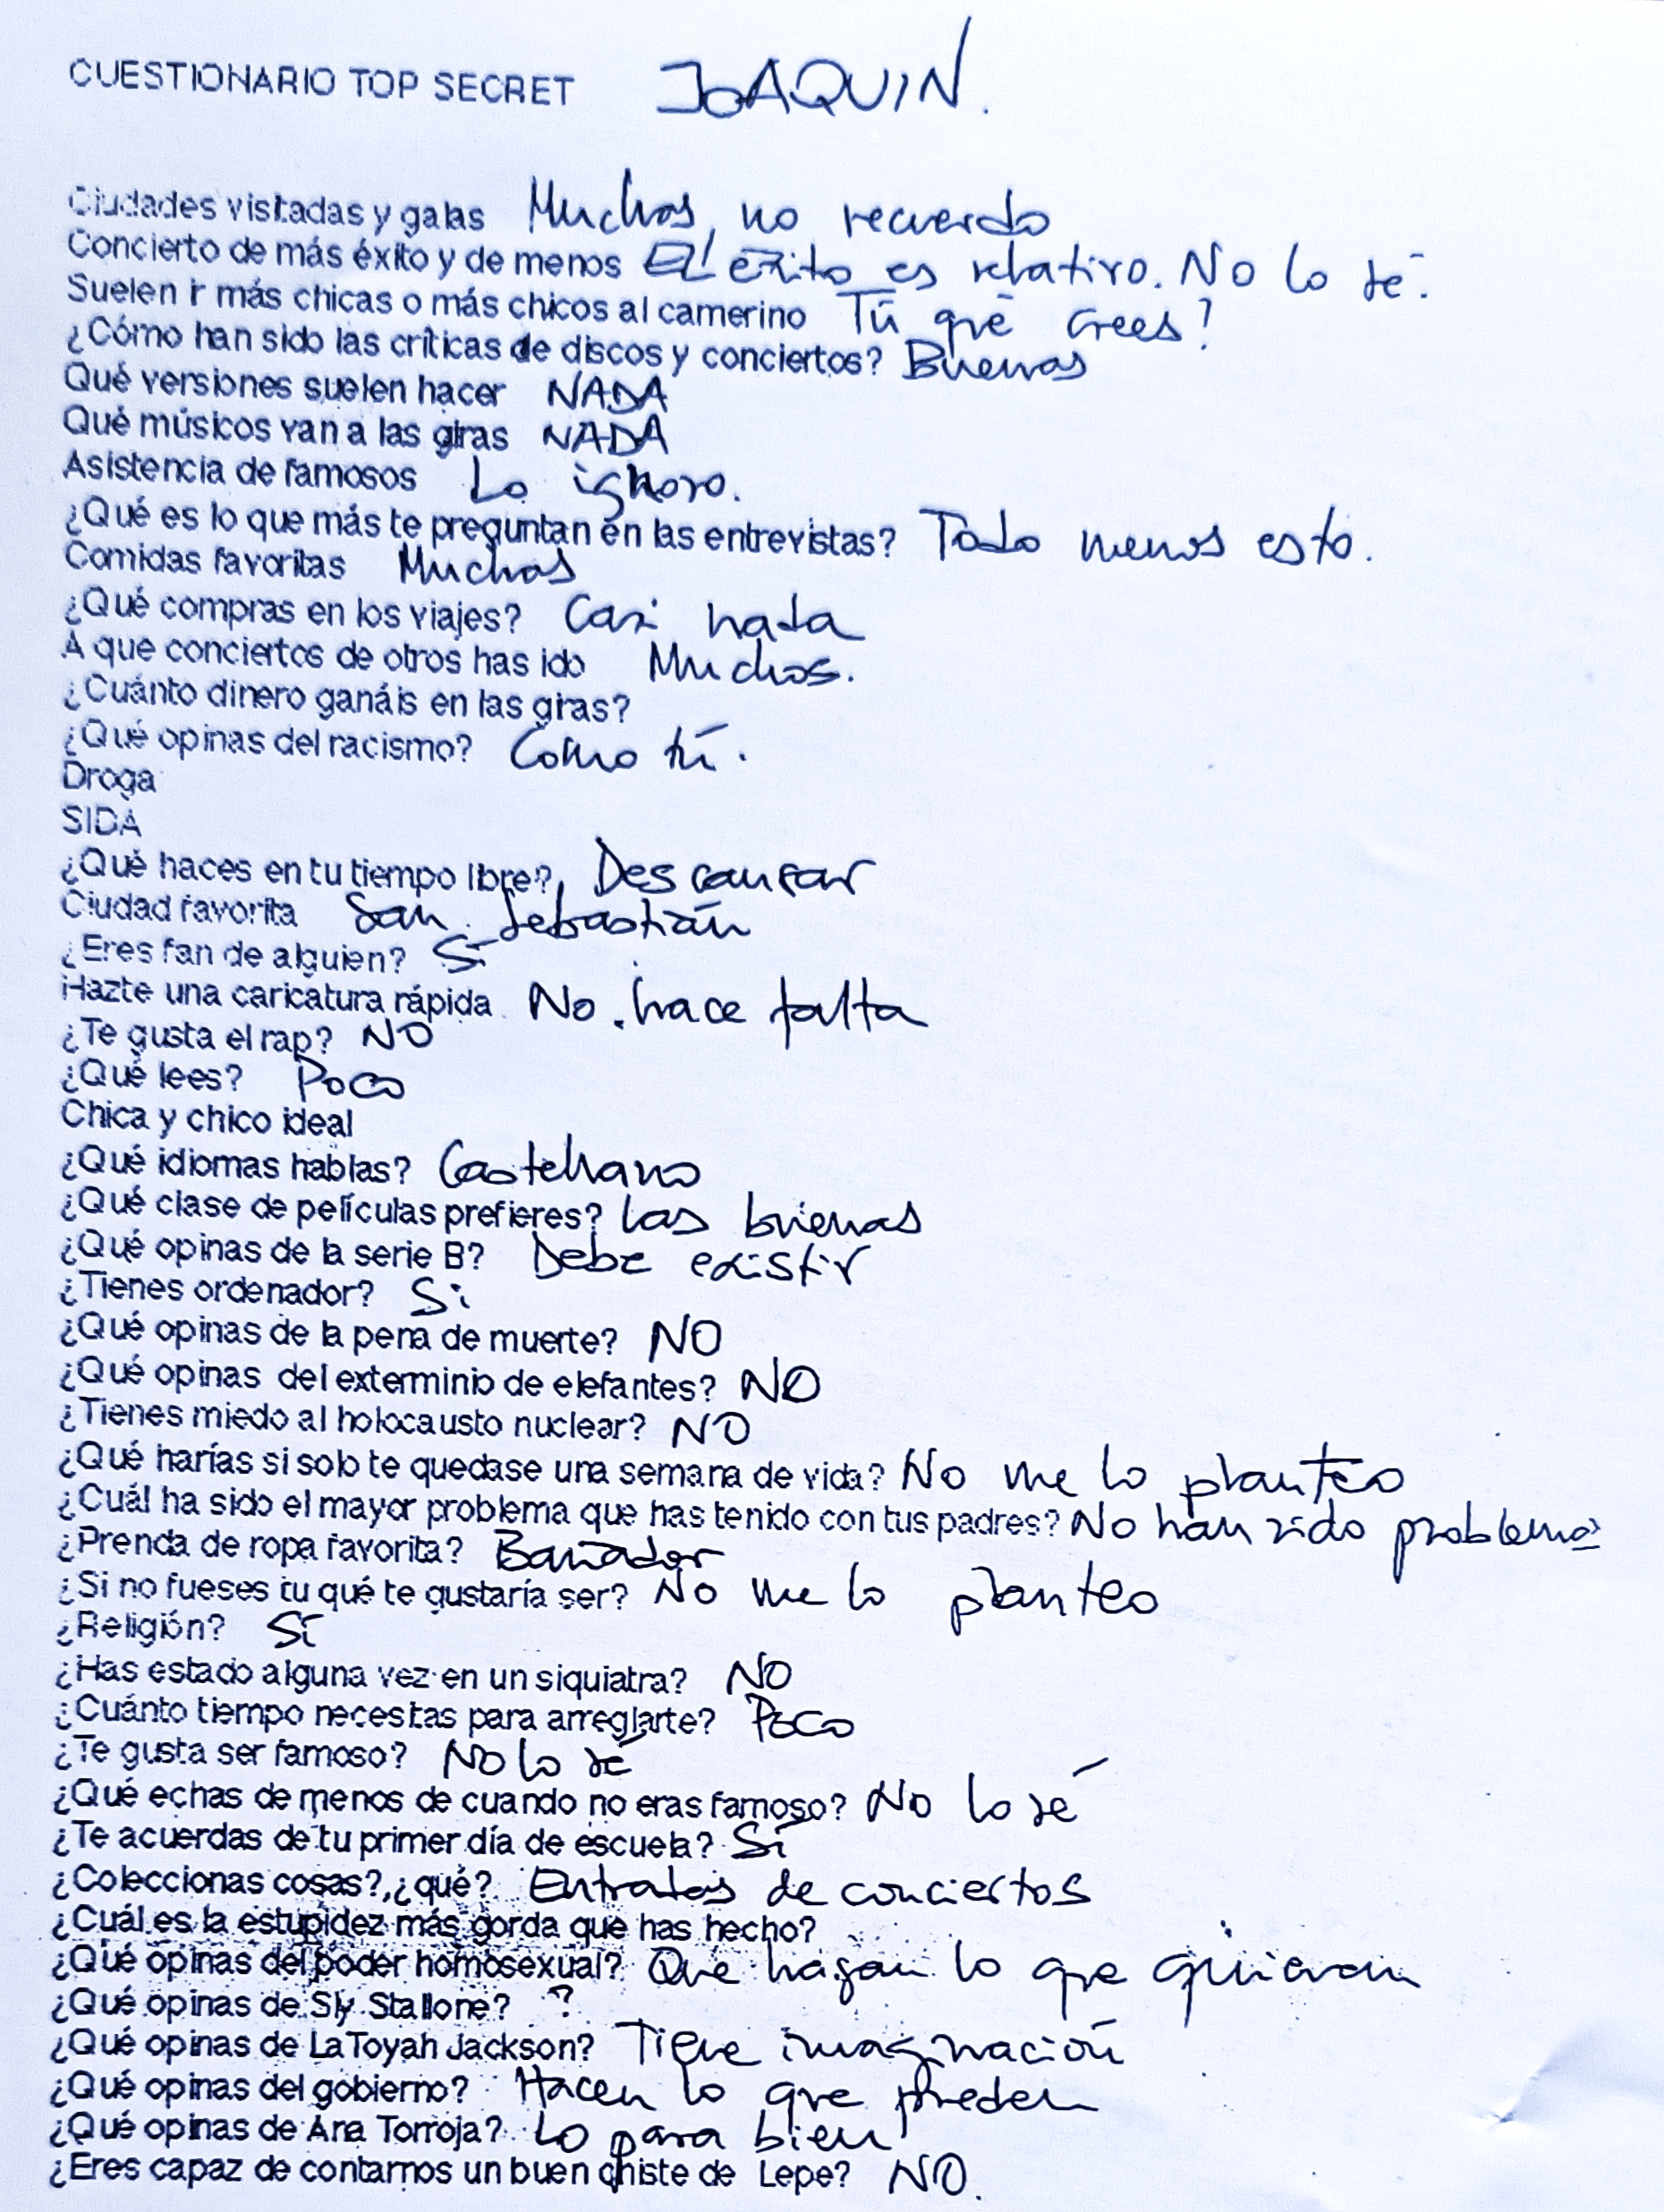 CUESTIONARIO TOP SECRET JOAQUIN.
Ciudades visitadas y galas Muchas, no recuerdo
Concierto de más éxito y de menos El éxito es relativo. No lo sé.
Suelen ir más chicas o más chicos al camerino Tú qué crees?
¿Cómo han sido las críticas de discos y conciertos? Buenas
Qué versiones suelen hacer NADA
Qué músicos van a las giras NADA
Asistencia de famosos Lo ignoro.
¿Qué es lo que más te preguntan en las entrevistas? Todo menos esto.
Comidas favoritas Muchas
¿Qué compras en los viajes? Casi nada
A que conciertos de otros has ido Muchos.
¿Cuánto dinero ganáis en las giras?
¿Qué opinas del racismo? Como tú.
Droga
SIDA
¿Qué haces en tu tiempo libre? Descansar
Ciudad favorita San Sebastián
¿Eres fan de alguien? Sí
Hazte una caricatura rápida No hace falta
¿Te gusta el rap? NO
¿Qué lees? Poco
Chica y chico ideal
¿Qué idiomas hablas? Castellano
¿Qué clase de películas prefieres? Las buenas
¿Qué opinas de la serie B? Debe existir
¿Tienes ordenador? Si
¿Qué opinas de la pena de muerte? NO
¿Qué opinas del exterminio de elefantes? NO
¿Tienes miedo al holocausto nuclear? NO
¿Qué harías si solo te quedase una semana de vida? No me lo planteo
¿Cuál ha sido el mayor problema que has tenido con tus padres? No han sido problema
¿Prenda de ropa favorita? Bañador
¿Si no fueses tu qué te gustaría ser? No me lo planteo
¿Religión? Sí
¿Has estado alguna vez en un siquiatra? NO
¿Cuánto tiempo necesitas para arreglarte? Poco
¿Te gusta ser famoso? No lo sé
¿Qué echas de menos de cuando no eras famoso? No lo sé
¿Te acuerdas de tu primer día de escuela? Sí
¿Coleccionas cosas?,¿qué? Entradas de conciertos
¿Cuál es la estupidez más gorda que has hecho?
¿Qué opinas del poder homosexual? Que hagan lo que quieran
¿Qué opinas de Sly Stallone? ?
¿Qué opinas de LaToyah Jackson? Tiene imaginación
¿Qué opinas del gobierno? Hacen lo que pueden
¿Qué opinas de Ana Torroja? Lo para bien
¿Eres capaz de contarnos un buen chiste de Lepe? NO.